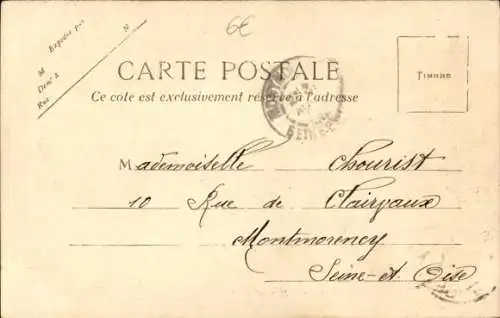 6€
Expédié par
M
N
Demt à
Rue
CARTE POSTALE
TIMBRE
Ce côté est exclusivement réservé à l'adresse
Mademoiselle Chourist
10 Rue de Clairvaux
Montmorency
Seine-et Oise